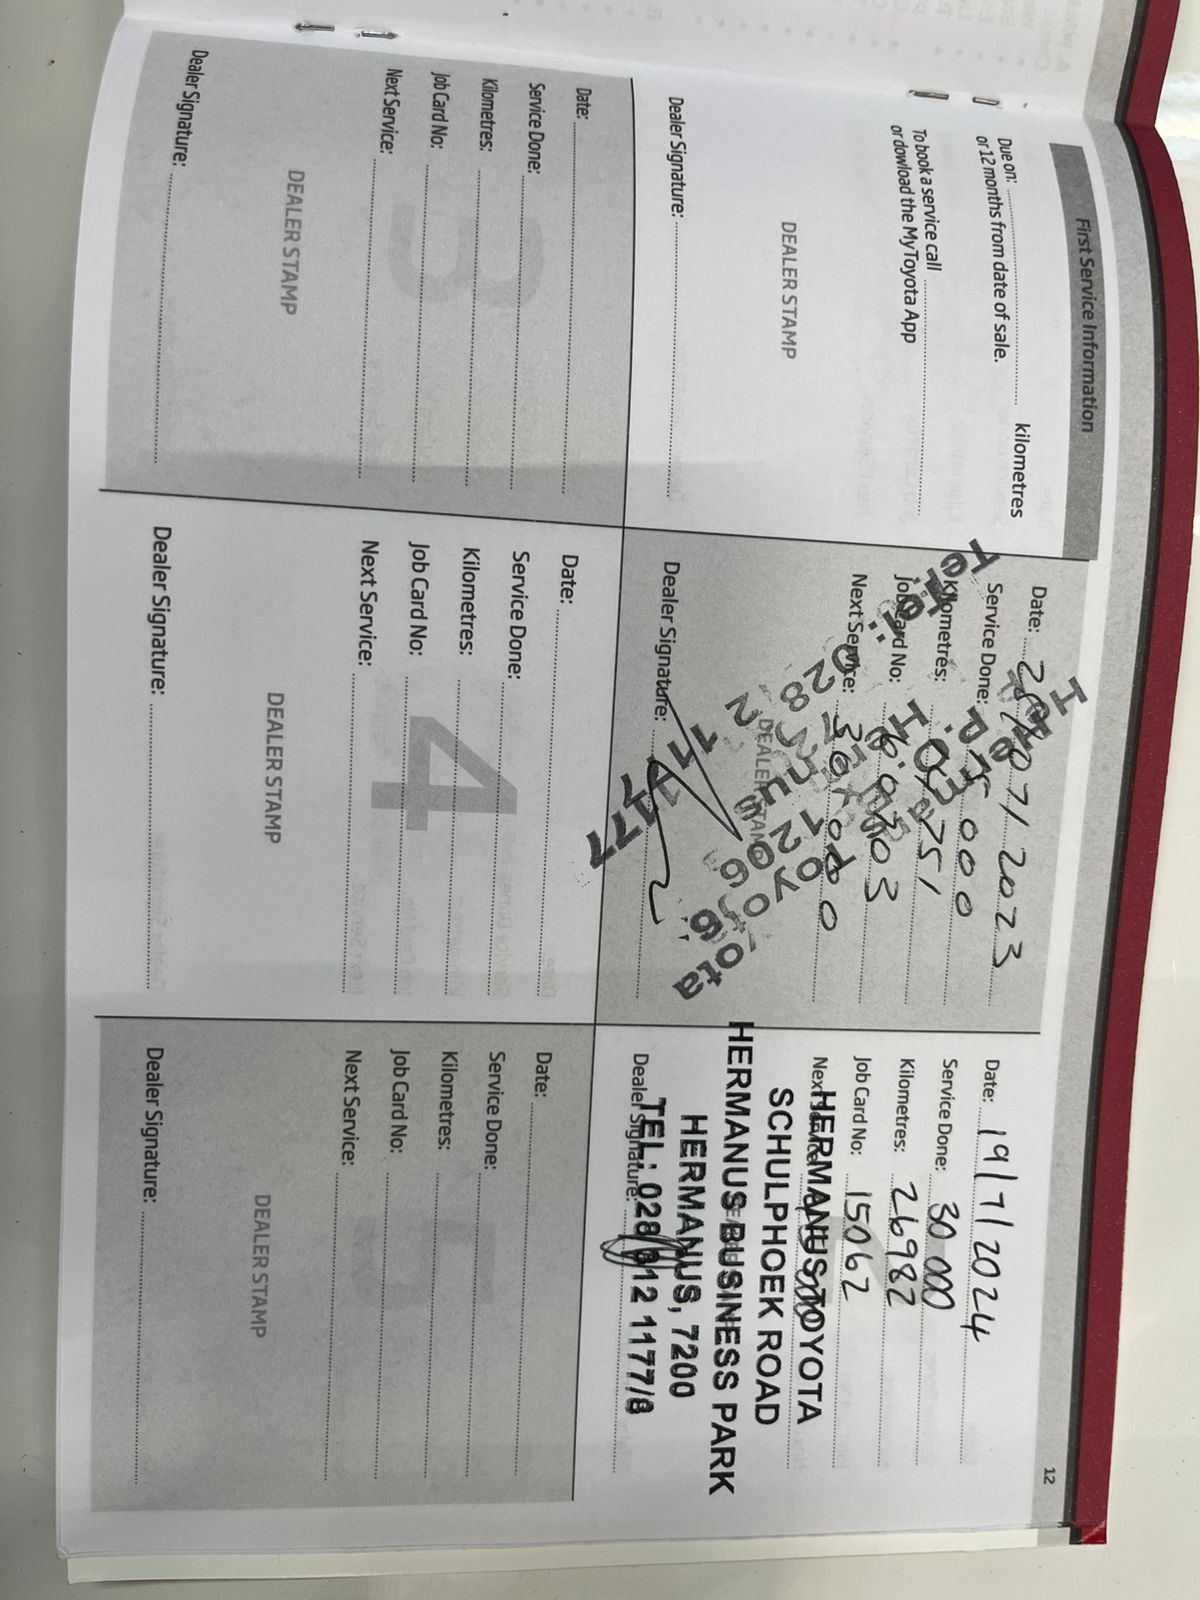 12
First Service Information
Due on: kilometres
or 12 months from date of sale.
To book a service call
or dowload the MyToyota App
DEALER STAMP
Dealer Signature:
Date: 07/2023
Service Done: 000
Kilometres:
Job Card No:
Next Service:
DEALER STAMP
Dealer Signature:
Date: 19/7/2024
Service Done: 30 000
Kilometres: 26982
Job Card No: 15062
Next
HERMANUS TOYOTA
SCHULPHOEK ROAD
HERMANUS BUSINESS PARK
HERMANUS, 7200
TEL: 028 312 1177/8
Dealer Signature:
3
Date:
Service Done:
Kilometres:
Job Card No:
Next Service:
DEALER STAMP
Dealer Signature:
4
Date:
Service Done:
Kilometres:
Job Card No:
Next Service:
DEALER STAMP
Dealer Signature:
5
Date:
Service Done:
Kilometres:
Job Card No:
Next Service:
DEALER STAMP
Dealer Signature: